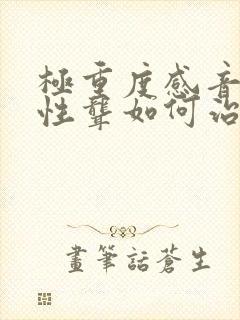 極重度感音
性聾如何治
畫筆話蒼生